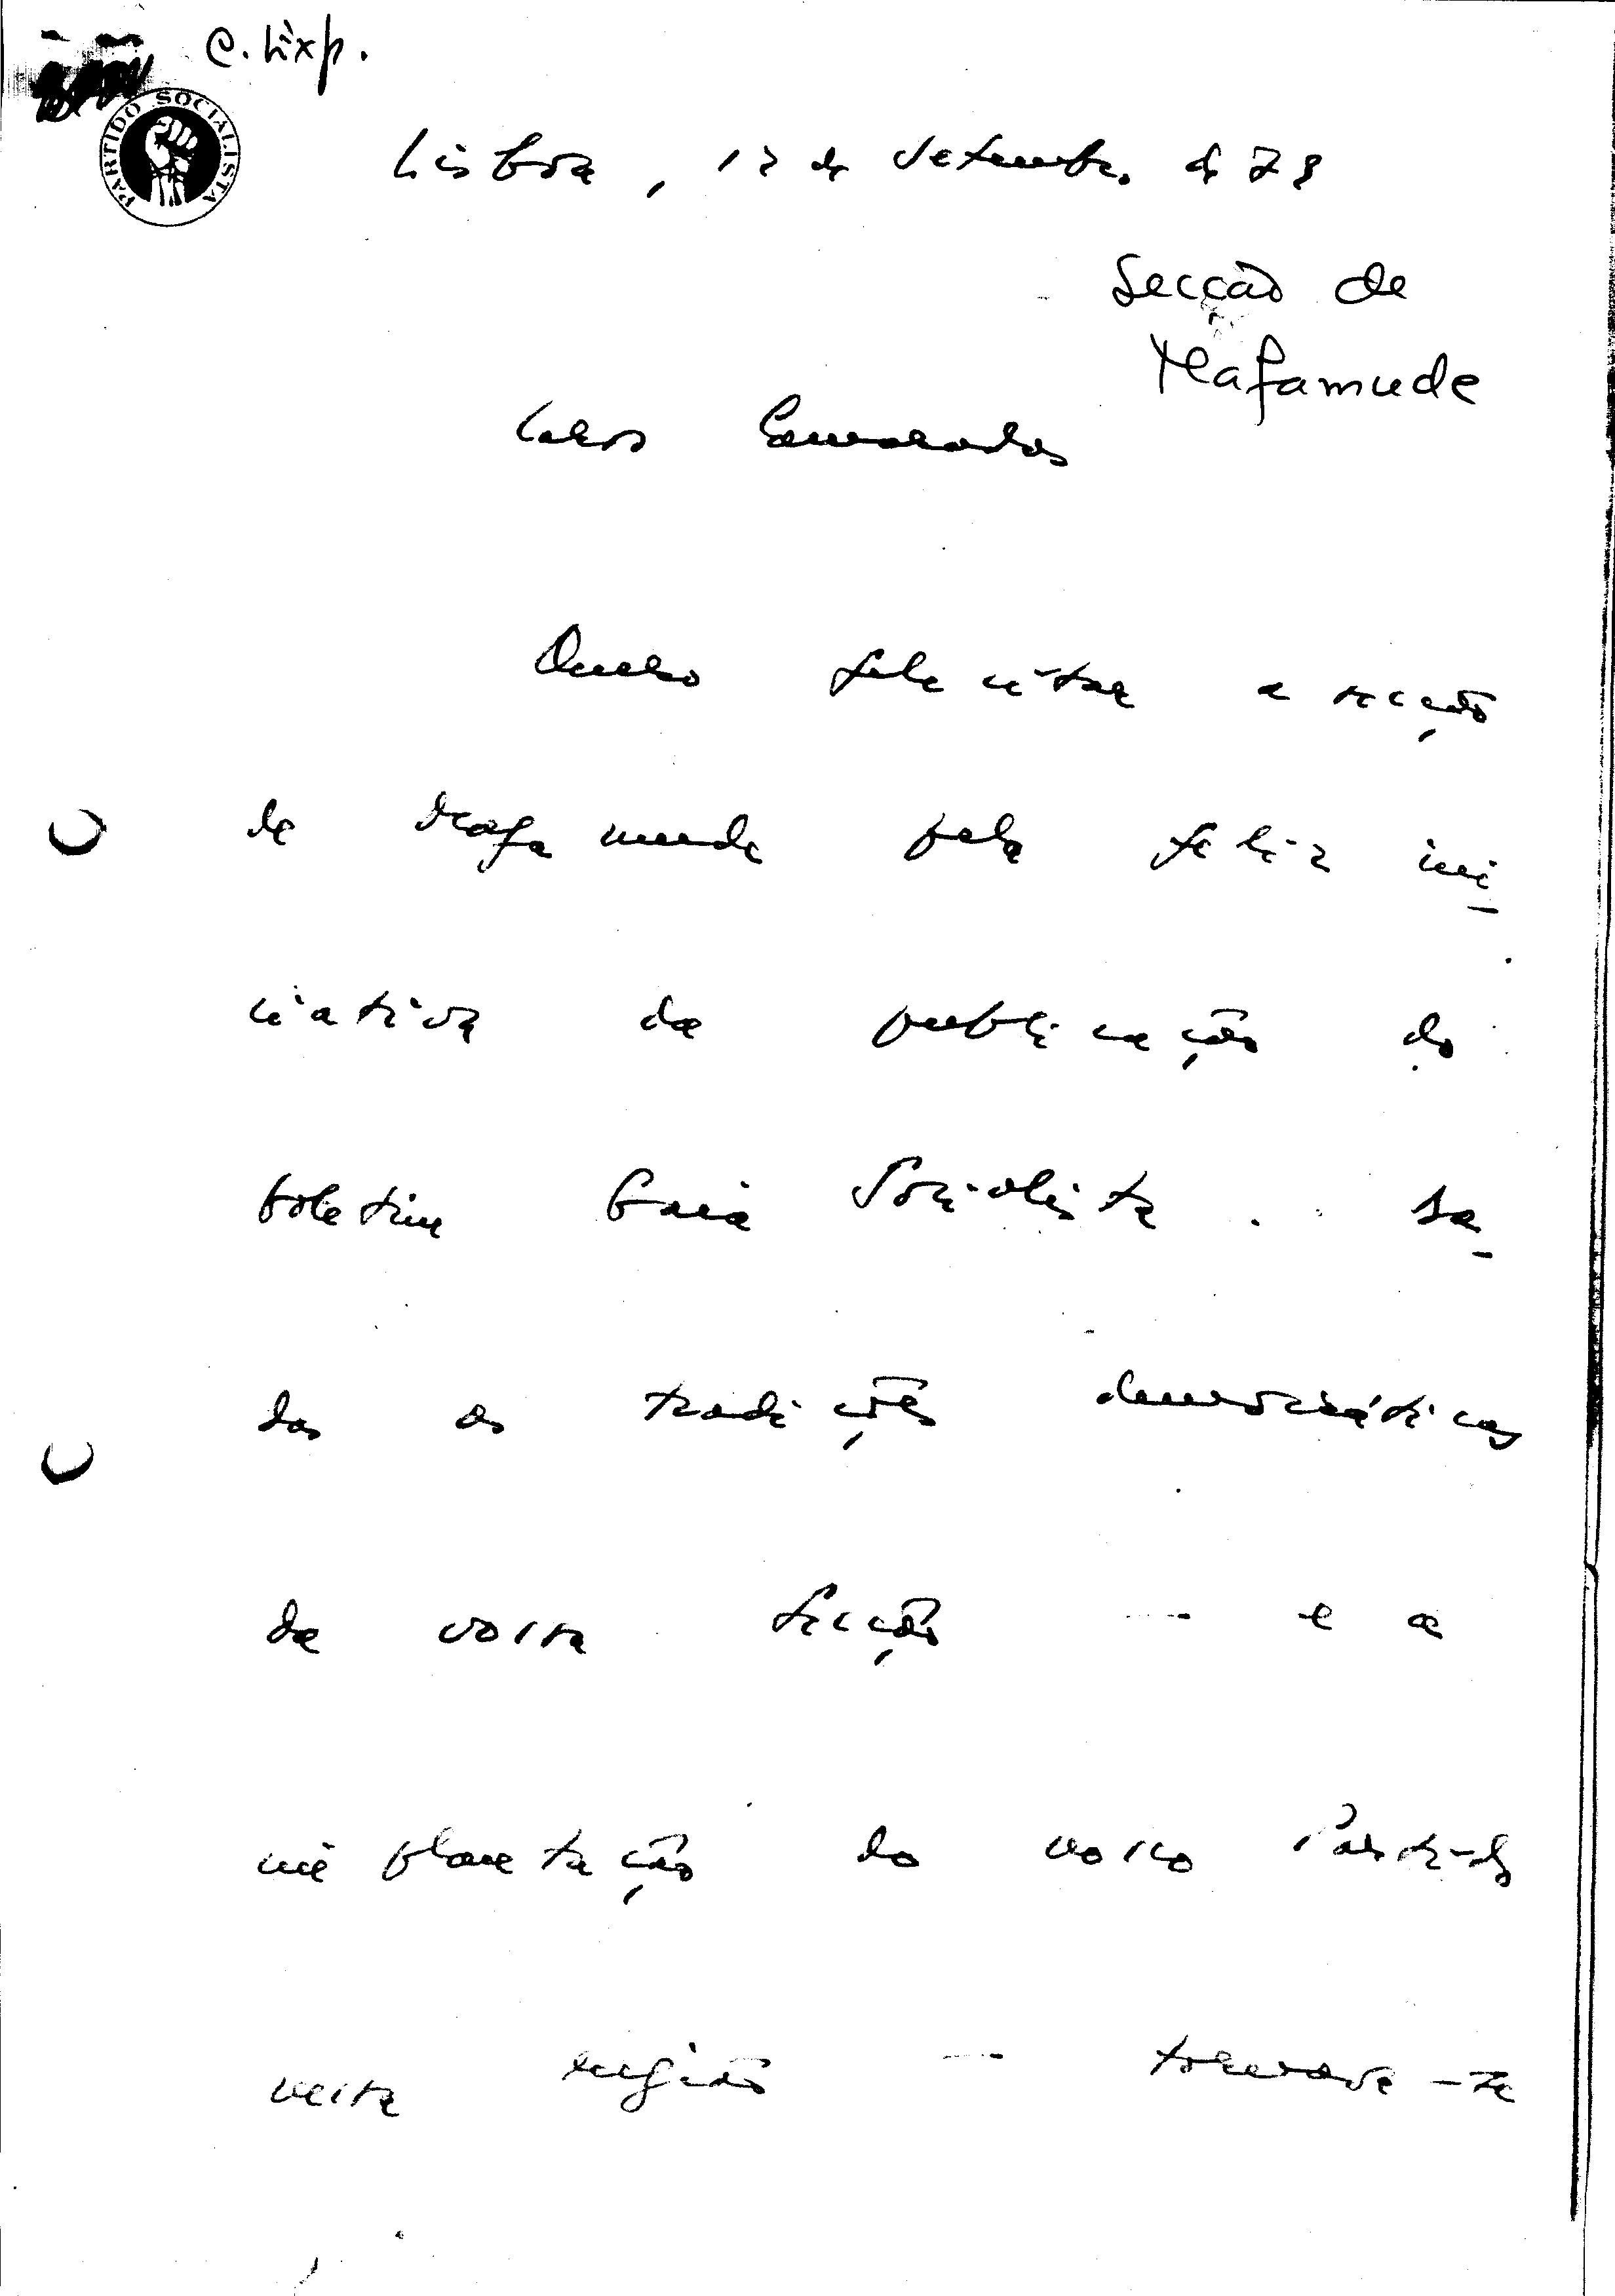 C. Exp.
PARTIDO SOCIALISTA
Lisboa, 12 de Setembro de 78
Secção de
Mafamude
Caros Camaradas
Quero felicitar a secção
de Mafamude pela feliz ini-
ciativa da publicação do
boletim Gaia Socialista. Da-
das as tradições democráticas
da vossa secção — e a
implantação do nosso Partido
nesta região — tornava-se